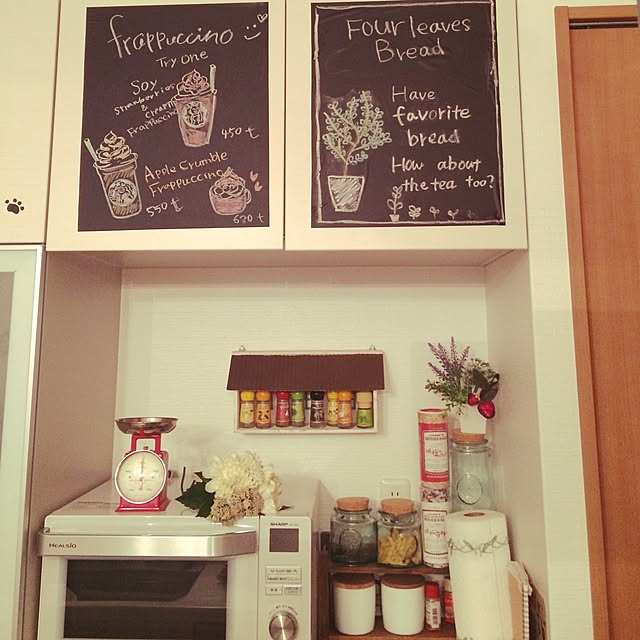 frappuccino
Try one
Soy
Strawberries
&
Cream
Frappuccino
450 t
Apple Crumble
Frappuccino
550 t
620 t
Four leaves
Bread
Have
favorite
bread
How about
the tea too?
HEALSIO
SHARP